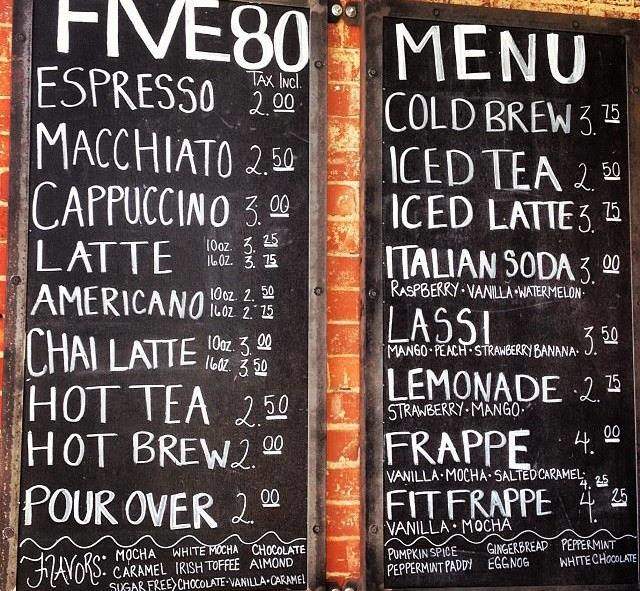 FIVE80
TAX INCL.
ESPRESSO 2.00
MACCHIATO 2.50
CAPPUCCINO 3.00
LATTE 10oz. 3.25
16oz. 3.75
AMERICANO 10oz 2.50
16oz 2.75
CHAI LATTE 10oz. 3.00
16oz. 3.50
HOT TEA 2.50
HOT BREW 2.00
POUR OVER 2.00
FLAVORS: MOCHA WHITE MOCHA CHOCOLATE
CARAMEL IRISH TOFFEE ALMOND
SUGAR FREE) CHOCOLATE · VANILLA · CARAMEL
MENU
COLD BREW 3.75
ICED TEA 2.50
ICED LATTE 3.75
ITALIAN SODA 3.00
RASPBERRY · VANILLA · WATERMELON ·
LASSI 3.50
MANGO · PEACH · STRAWBERRY BANANA ·
LEMONADE 2.75
STRAWBERRY · MANGO ·
FRAPPE 4.00
VANILLA · MOCHA · SALTED CARAMEL · 4.25
FIT FRAPPE 4.25
VANILLA · MOCHA
PUMPKIN SPICE GINGERBREAD PEPPERMINT
PEPPERMINT PADDY EGGNOG WHITE CHOCOLATE